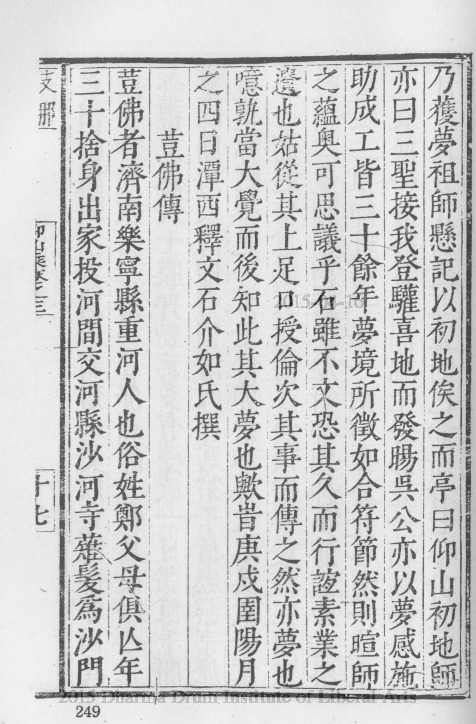 乃獲夢祖師懸記以初地俟之而亭曰仰山初地師
亦曰三聖接我登驩喜地而發暘吳公亦以夢感施
助成工皆三十餘年夢境所徵如合符節然則暄師
之蘊奥可思議乎石雖不文恐其久而行誼素業之
邉也姑從其上足口授倫次其事而傳之然亦夢也
噫孰當大覺而後知此其大夢也歟旹庚戍圉陽月
之四日潭西釋文石介如氏撰
荳佛傳
荳佛者濟南樂寧縣重河人也俗姓鄭父母俱亾年
三十捨身出家投河間交河縣沙河寺薙髮爲沙門
卷之三
十七
2015-1-16
2015 Dharma Drum Institute of Liberal Arts
249